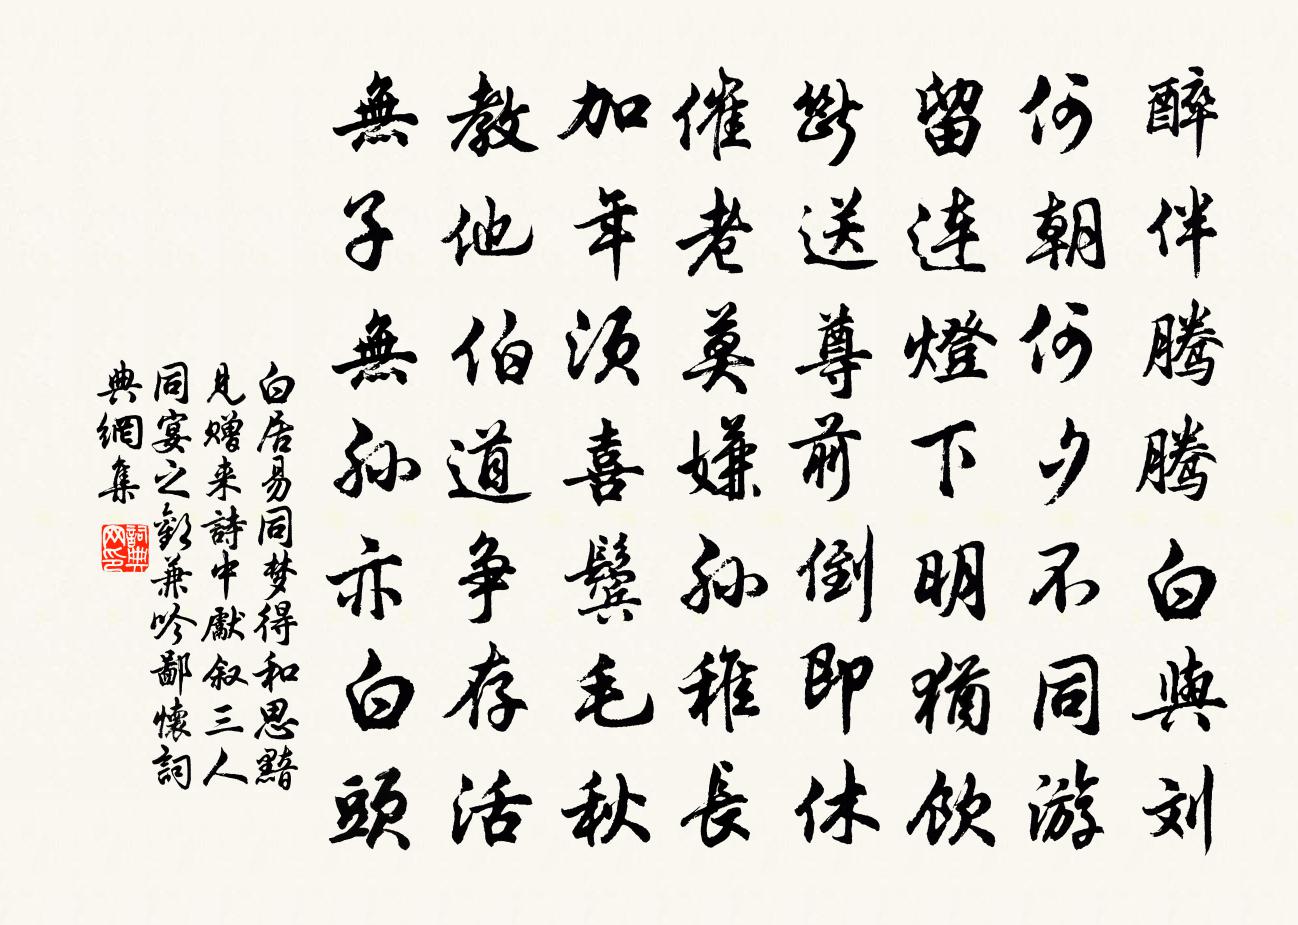 醉伴騰騰白與刘
何朝何夕不同游
留連燈下明猶飲
斷送尊前倒即休
催老莫嫌孙稚長
加年须喜鬓毛秋
教他伯道争存活
無子無孙亦白頭
白居易同梦得和思黯
見赠来詩中獻叙三人
同宴之歡兼吟鄙懷詞
典網集
詞典网印